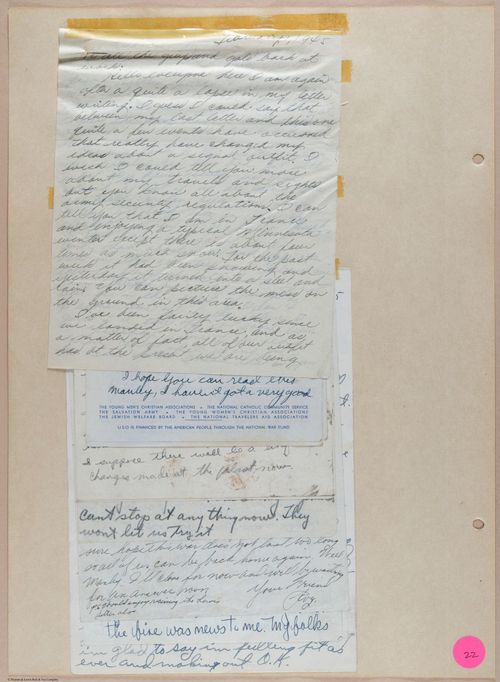 France 1945
To all the guys and gals back at
work:
Hello everyone here I am again
after a quite a lapse in my letter
writing. I guess I could say that
between my last letter and this one
quite a few events have occurred
that really have changed my
ideas about a signal outfit. I
wish I could tell you more
about my travels and sights
but you know all about the
army security regulations. I can
tell you that I am in France
and enjoying a typical Minnesota
winter except there is about four
times as much snow. For the past
week it had been snowing and
yesterday it turned into a sleet and
rain. You can picture the mess on
the ground in this area.
I've been fairly lucky since
we landed in France and as
a matter of fact all of our outfit
has at the present we are being
I hope you can read this
Manley, I haven't got a very good
THE YOUNG MEN'S CHRISTIAN ASSOCIATIONS • THE NATIONAL CATHOLIC COMMUNITY SERVICE
THE SALVATION ARMY • THE YOUNG WOMEN'S CHRISTIAN ASSOCIATIONS
THE JEWISH WELFARE BOARD • THE NATIONAL TRAVELERS AID ASSOCIATION
U·S·O IS FINANCED BY THE AMERICAN PEOPLE THROUGH THE NATIONAL WAR FUND
I suppose there will be a
changes made at the plant now
cant stop at any thing now. They
wont let us try it
sure hope this war does not last too long
so all of us can be back home again. Well
Manley I'll close for now and will be waiting
for an answer from
Your friend
letter also
the fire was news to me. My folks
im glad to say im feeling fit as
ever and making out O.K.
22